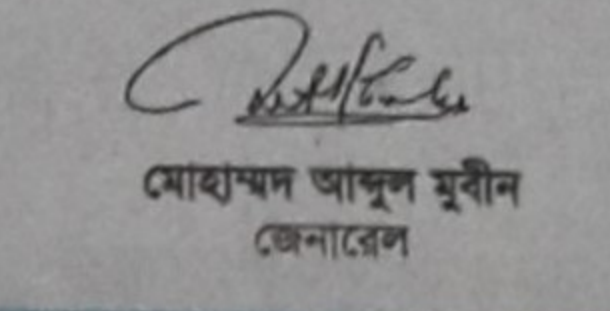 মোহাম্মদ আব্দুল মুবীন
জেনারেল